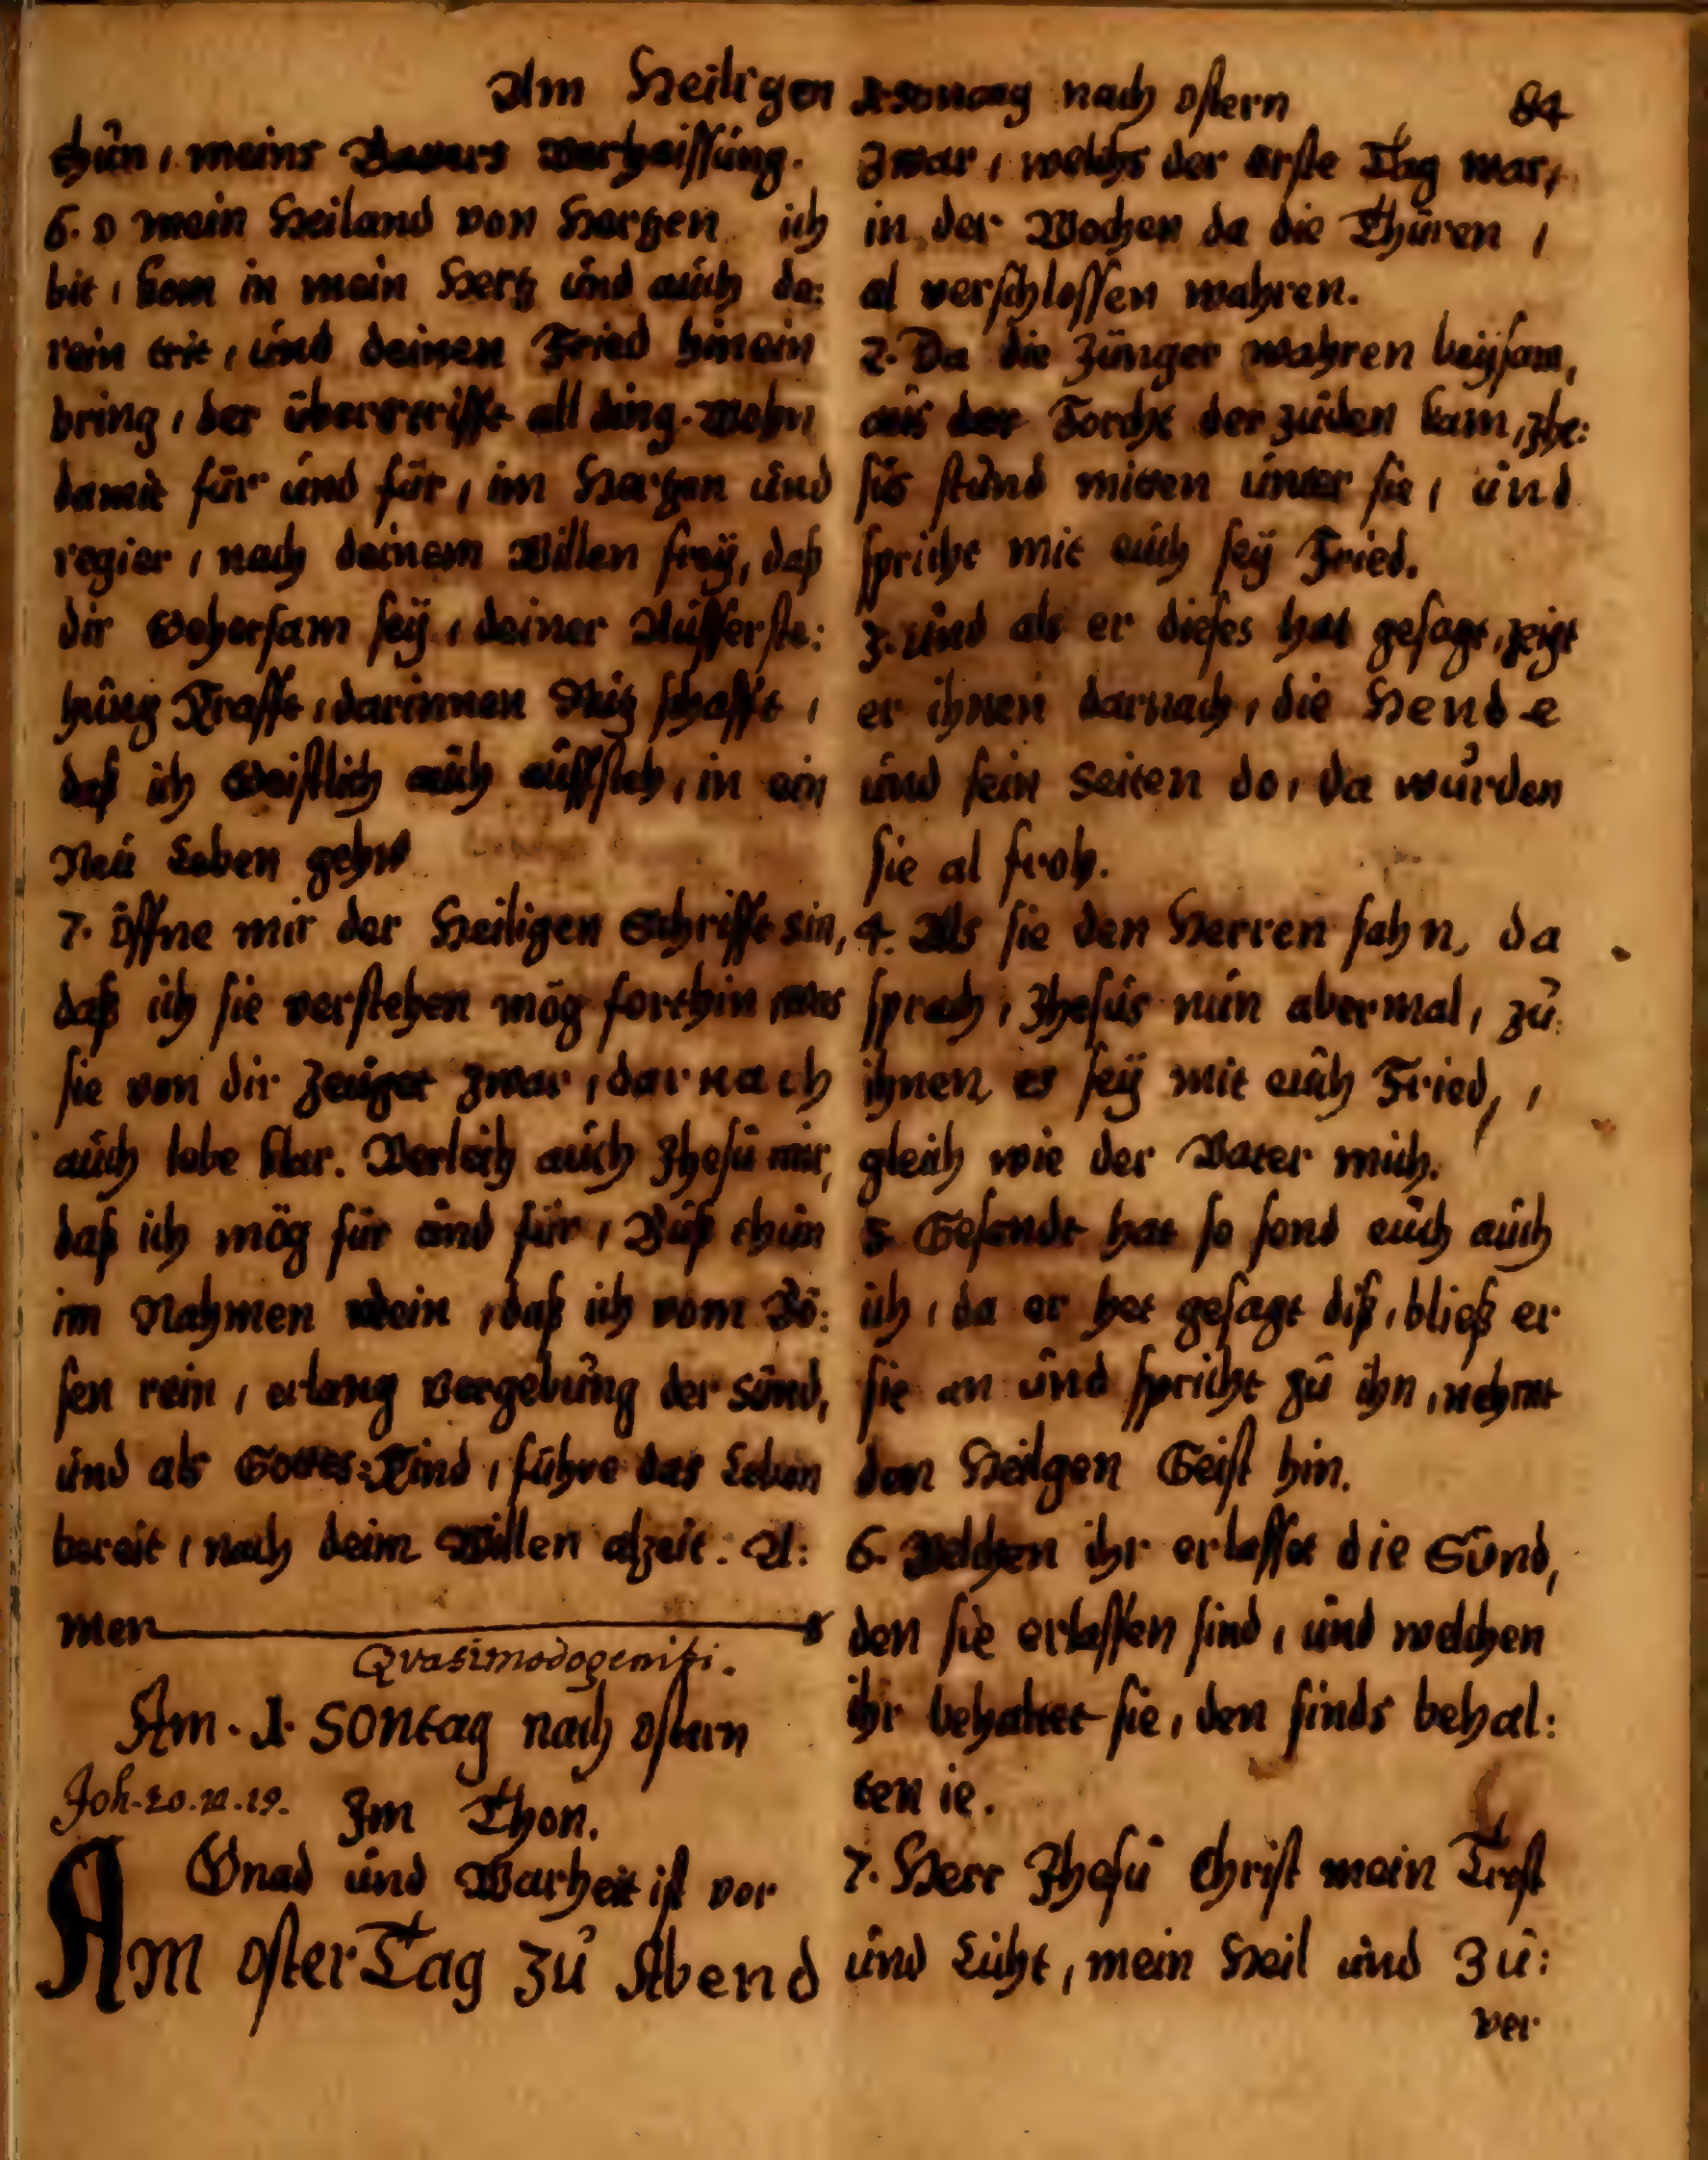 Am Heiligen 1. Sontag nach ostern 84
thun, meins Vaters verheissung.
6. O mein Heiland von Hertzen ich
bit, kom in mein Hertz und auch da:
rein trit, und deinen Fried hinein
bring, der übertrifft all ding. Wohn
damit für und für, im Hertzen und
regier, nach deinem Willen freÿ, daß
dir Gehorsam seÿ, deiner Aufferste:
hung Krafft, darinnen Nutz schafft,
daß ich Geistlich auch auffsteh, in ein
Neu Leben geh
7. Öffne mir der Heiligen Schrifft sin,
daß ich sie verstehen mög forthin, was
sie von dir Zeuget zwar, darnach
auch lebe klar. Verleih auch Jhesu mir,
daß ich mög für und für, Buß thun
im Nahmen dein, daß ich vom Bö:
sen rein, erlang vergebung der sünd,
und als Gottes: Kind, führe das Leben
bereit, nach deim Willen alzeit. A:
men
Qvasimodogeniti.
Am. 1. Sontag nach ostern
Joh. 20. v. 19. Im Thon.
Gnad und Warheit ist vor
Am oster Tag zu Abend
zwar, welchs der erste Tag war,
in der Wochen da die Thüren,
al verschlossen wahren.
2. Da die Jünger wahren beÿsam,
aus der Forcht der Juden kam, Jhe:
sus stund mitten unter sie, und
spricht mit euch seÿ Fried.
3. und als er dieses hat gesagt, zeigt
er ihnen darnach, die Hende
und sein Seiten do, da wurden
sie al froh.
4. Als sie den Herren sahn, da
sprach, Jhesus nun abermal, zu
ihnen es seÿ mit euch Fried,,
gleich wie der Vater mich.
5 Gesandt hat so send euch auch
ich, da er het gesagt diß, bließ er
sie an und spricht zu ihn, nehmt
den Heilgen Geist hin.
6. Welchen ihr erlasset die Sünd,
den sie erlassen sind, und welchen
ihr behaltet sie, den sinds behal:
ten ie.
7. Herr Jhesu Christ mein Trost
und Licht, mein Heil und Zu:
ver